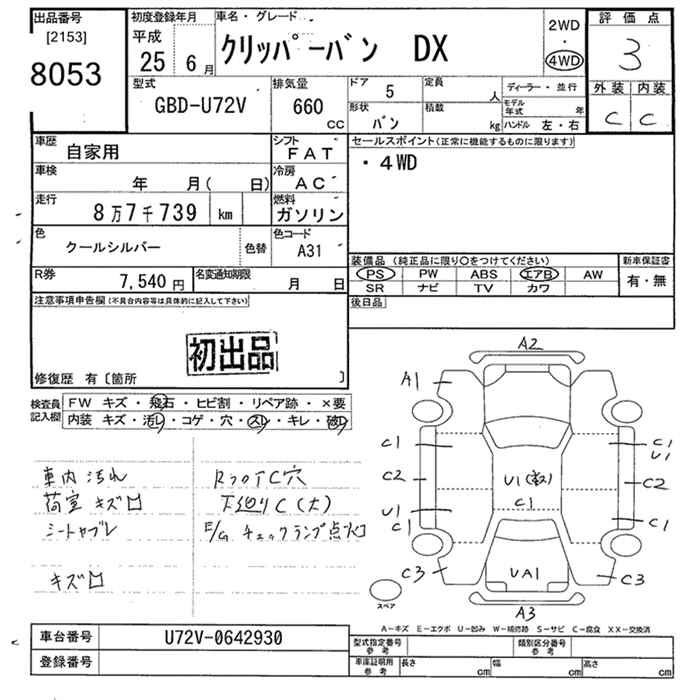 出品番号
[2153]
8053
初度登録年月
平成
25 6月
車名・グレード
クリッパーバン DX
2WD
・
4WD
評価点
3
外装 内装
C C
型式
GBD-U72V
排気量
660
CC
ドア 5
形状 バン
定員 人
積載 kg
ディーラー・並行
モデル年式 年
ハンドル 左・右
車歴
自家用
シフト
FAT
車検
年 月( 日)
冷房
AC
走行
8万7千739 km
燃料
ガソリン
色
クールシルバー
色替
色コード
A31
R券
7,540円
名変通知期限
月 日
セールスポイント(正常に機能するものに限ります)
・4WD
装備品(純正品に限り○をつけてください)
PS PW ABS エアB AW
SR ナビ TV カワ
新車保証書
有・無
後日品
注意事項申告欄(不具合内容等は具体的に記入して下さい)
初出品
修復歴 有〔箇所 〕
検査員記入欄
FW キズ・飛石・ヒビ割・リペア跡・×要
内装 キズ・汚レ・コゲ・穴・スレ・キレ・破レ
車内 汚れ
荷室 キズ
シートヤブレ
キズ
RフロアC穴
下廻りC(大)
E/G チェックランプ点灯
A2
A1
C1
C1
U1
C2
U1
C1
C2
U1
C1
C1
C3
UA1
C3
A3
スペア
A－キズ E－エクボ U－凹み W－補修跡 S－サビ C－腐食 XX－交換済
車台番号
U72V-0642930
登録番号
型式指定番号
参考
類別区分番号
参考
車庫証明用
参考
長さ cm
幅 cm
高さ cm